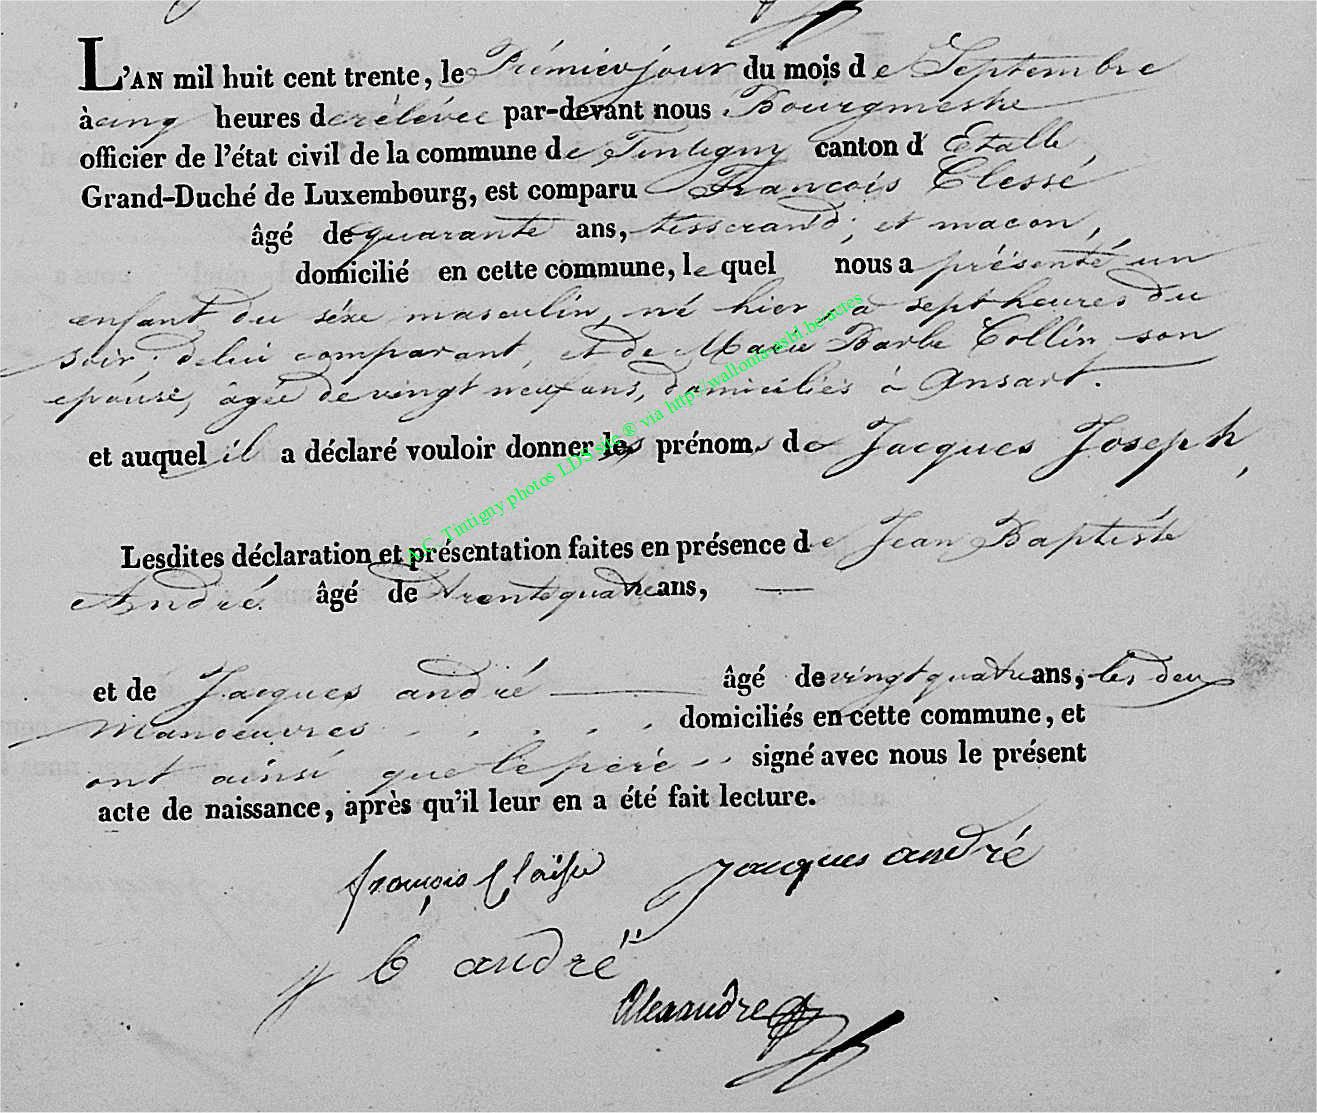 L'AN mil huit cent trente, le Prémier jour du mois de Septembre
à cinq heures de rélévée par-devant nous Bourgmestre
officier de l'état civil de la commune de Tintigny canton d'Etalle,
Grand-Duché de Luxembourg, est comparu François Clessé
âgé de quarante ans, tisserand, et macon,
domicilié en cette commune, le quel nous a présenté un
enfant du séxe masculin, né hier, à sept heures du
soir, de lui comparant et de Marie Barbe Collin son
épouse, âgée de vingt neuf ans, domiciliés à Ansart.
et auquel il a déclaré vouloir donner les prénoms de Jacques Joseph,
A.C. Tintigny photos LDS site ® via http://wallonia-asbl.be/actes
Lesdites déclaration et présentation faites en présence de Jean Baptiste
André. âgé de trente quatre ans,
et de Jacques andré âgé de vingt quatre ans, les deux
Manoeuvres domiciliés en cette commune, et
ont ainsi que le pére signé avec nous le présent
acte de naissance, après qu'il leur en a été fait lecture.
françois Claisse Jacques andré
j b andré
Alexandre